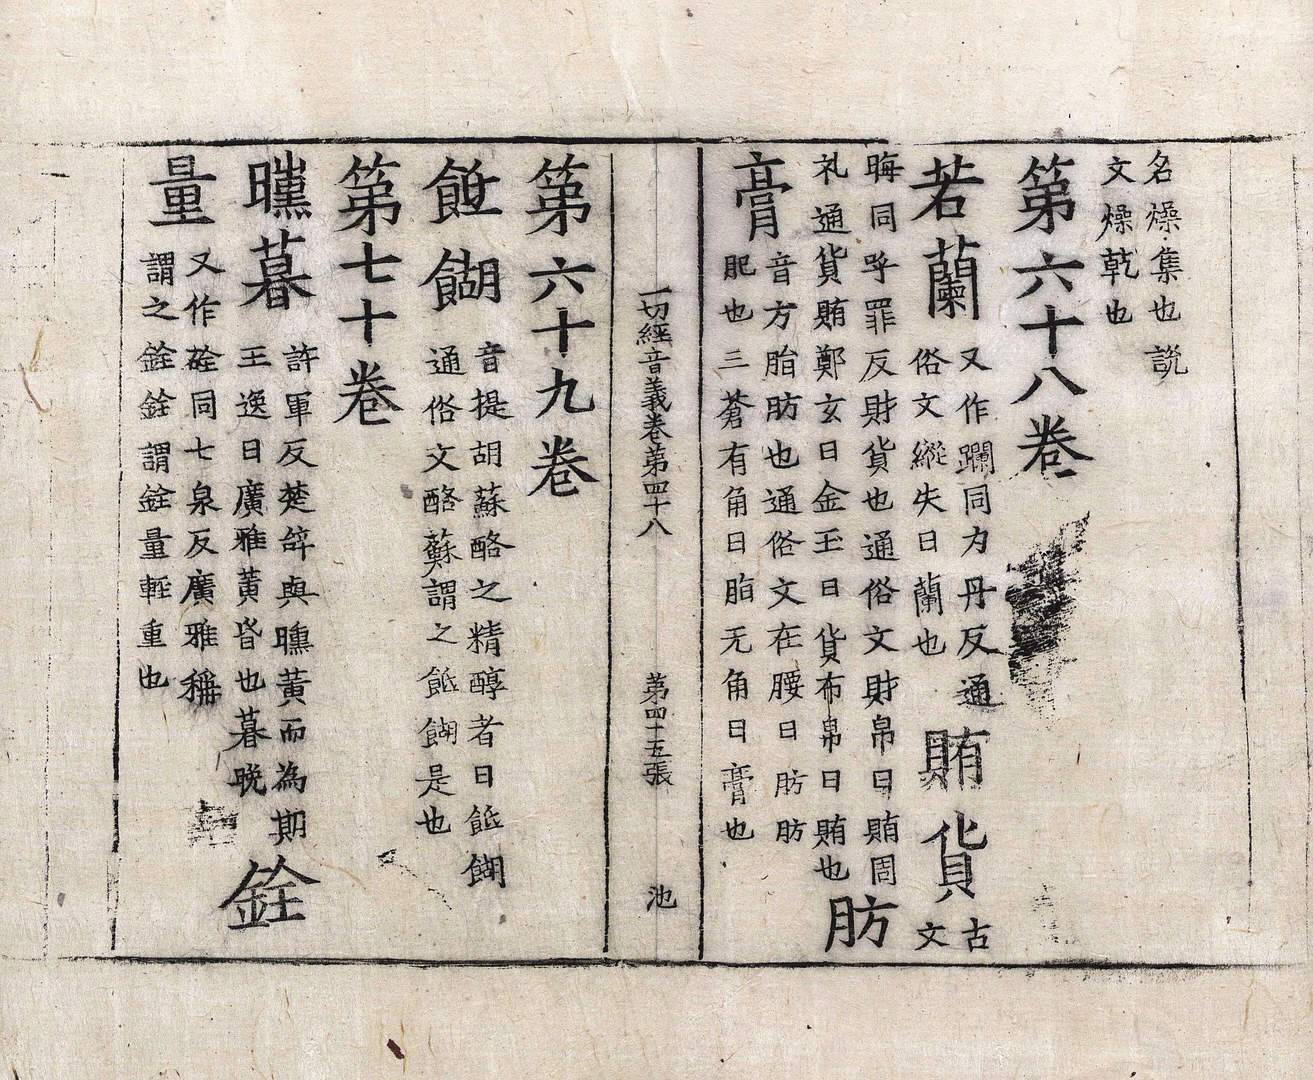 名燥集也說
文燥乾也
第六十八卷
若蘭
又作躝同力丹反通
俗文縱失曰蘭也
賄貨
古
文
晦同呼罪反財貨也通俗文財帛曰賄周
礼通貨賄鄭玄曰金玉曰貨布帛曰賄也
肪
膏
音方脂肪也通俗文在腰曰肪肪
肥也三蒼有角曰脂无角曰膏也
一切經音義卷第四十八 第四十五張 池
第六十九卷
䬫餬
音提胡蘇酪之精醇者曰䬫餬
通俗文酪蘇謂之䬫餬是也
第七十卷
曛暮
許軍反楚辞與曛黃而為期
王逸曰廣雅黃昏也暮晚
銓
量
又作硂同七泉反廣雅稱
謂之銓銓謂銓量輕重也